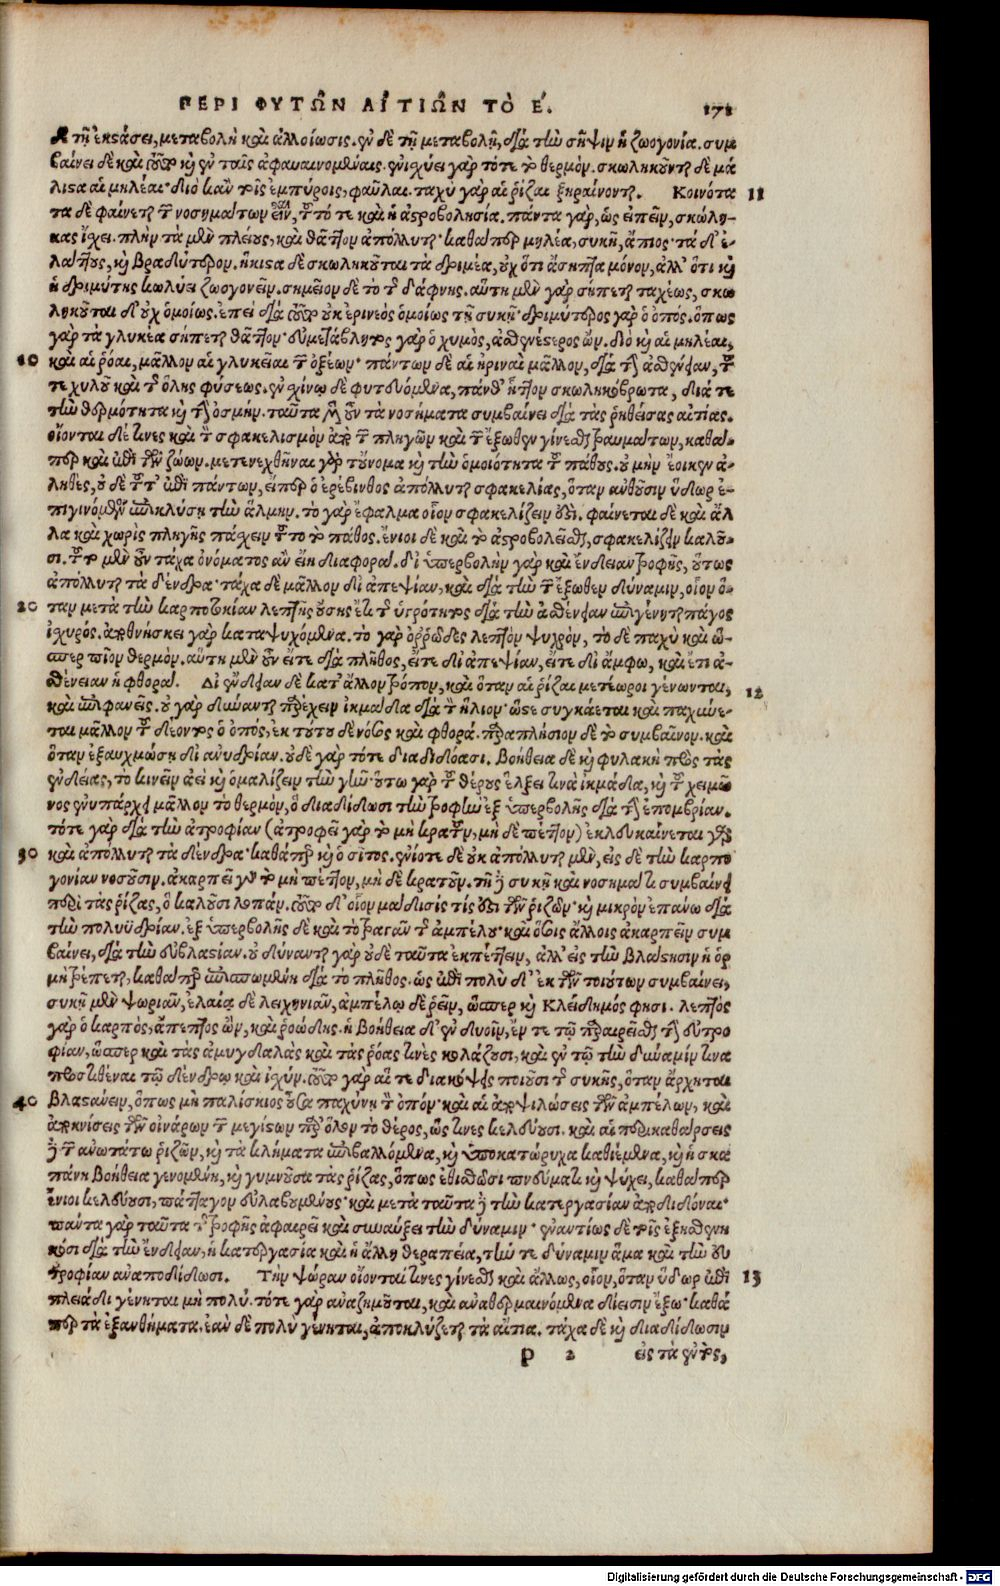 ΠΕΡΙ ΦΥΤΩ͂Ν ΑἸΤΙΩ͂Ν ΤῸ Ε. 171
τῇ ἐκστάσει, μεταβολὴ καὶ ἀλλοίωσις. ἐν δὲ τῇ μεταβολῇ, διὰ τὴν σῆψιν ἡ ζωογονία. συμ
βαίνει δὲ καὶ τοῦτο κὴ ἐν ταῖς ἀφαυαινομέναις. ἐνισχύει γὰρ τότε τὸ θερμόν. σκωληκοῦνται δὲ μά
λιστα αἱ μηλέαι· διὸ κἂν τοῖς ἐμπύροις, φαῦλαι. ταχὺ γὰρ αἱ ῥίζαι ξηραίνονται. Κοινότα 11
τα δὲ φαίνεται τῶν νοσημάτων εἶναι, τοῦτό τε καὶ ἡ ἀστροβολησία. πάντα γὰρ, ὡς εἰπεῖν, σκώλη-
κας ἴσχει. πλὴν τὰ μὲν πλείους, καὶ θᾶττον ἀπόλλυται· καθάπερ μηλέα, συκῆ, ἄπιος· τὰ δ' ἐ-
λάττους, καὶ βραδύτερον. ἥκιστα δὲ σκωληκοῦται τὰ δριμέα, οὐχ ὅτι ἄσηπτα μόνον, ἀλλ' ὅτι καὶ
ἡ δριμύτης κωλύει ζωογονεῖν. σημεῖον δὲ τὸ τῆς δάφνης. αὕτη μὲν γὰρ σήπεται ταχέως, σκω
ληκοῦται δ' οὐχ ὁμοίως. ἐπεὶ διὰ τοῦτο οὐκ ἐρινεὸς ὁμοίως τῇ συκῇ· δριμύτερος γὰρ ὁ ὀπός. ὅπως
γὰρ τὰ γλυκέα σήπεται θᾶττον· εὐμετάβλητος γὰρ ὁ χυμὸς, ἀσθενέστερος ὤν. διὸ καὶ αἱ μηλέαι,
10 καὶ αἱ ῥόαι, μᾶλλον αἱ γλυκεῖαι τῶν ὀξέων· πάντων δὲ αἱ ἠριναὶ μᾶλλον, διὰ τὴν ἀσθένειαν, τοῦ
τε χυλοῦ καὶ τῆς ὅλης φύσεως. ἐν σχίνῳ δὲ φυτευόμενα, πάνθ' ἧττον σκωληκόβρωτα, διά τε
τὴν θερμότητα καὶ τὴν ὀσμήν. ταῦτα μὲν οὖν τὰ νοσήματα συμβαίνει διὰ τὰς ῥηθείσας αἰτίας.
οἴονται δέ τινες καὶ τὸν σφακελισμὸν ἀπὸ τῶν πληγῶν καὶ τῶν ἔξωθεν γίνεσθαι τραυμάτων, καθά-
περ καὶ ἐπὶ τῶν ζώων. μετενεχθῆναι γὰρ τοὔνομα καὶ τὴν ὁμοιότητα τοῦ πάθους. οὐ μὴν ἔοικεν ἀ-
ληθὲς, οὐδὲ τοῦτ' ἐπὶ πάντων, εἴπερ ὁ ἐρέβινθος ἀπόλλυται σφακελίας, ὅταν ἀνθοῦσιν ὕδωρ ἐ-
πιγινόμενον περικλύσῃ τὴν ἅλμην. τὸ γὰρ ἔφαλμα οἷον σφακελίζειν ἐστί. φαίνεται δὲ καὶ ἄλ
λα καὶ χωρὶς πληγῆς πάσχειν τοῦτο τὸ πάθος. ἔνιοι δὲ καὶ τὸ ἀστροβολεῖσθαι, σφακελίζειν καλοῦ-
σι. τοῦτο μὲν οὖν τάχα ὀνόματος ἂν εἴη διαφορά. δι' ὑπερβολὴν γὰρ καὶ ἔνδειαν τροφῆς, οὕτως
ἀπόλλυται τὰ δένδρα· τάχα δὲ μᾶλλον δι' ἀπεψίαν, καὶ διὰ τὴν τῶν ἔξωθεν δύναμιν, οἷον ὅ-
20 ταν μετὰ τὴν καρποτοκίαν λεπτῆς οὔσης ἔτι τῆς ὑγρότητος διὰ τὴν ἀσθένειαν ἐπιγένηται πάγος
ἰσχυρός. ἀποθνήσκει γὰρ καταψυχόμενα. τὸ γὰρ ὀῤῥῶδες λεπτὸν ψυχρὸν, τὸ δὲ παχὺ καὶ ὥ-
σπερ πῖον θερμόν. αὕτη μὲν οὖν εἴτε διὰ πλῆθος, εἴτε δι' ἀπεψίαν, εἴτε δι' ἄμφω, καὶ ἔτι ἀ-
σθένειαν ἡ φθορά. Δι' ἔνδειαν δὲ κατ' ἄλλον τρόπον, καὶ ὅταν αἱ ῥίζαι μετέωροι γένωνται, 12
καὶ ἐπιφανεῖς. οὐ γὰρ δύνανται προσέχειν ἰκμάδα διὰ τὸν ἥλιον· ὥστε συγκάεται καὶ παχύνε-
ται μᾶλλον τοῦ δέοντος ὁ ὀπός, ἐκ τούτου δὲ νόσος καὶ φθορά. παραπλήσιον δὲ τὸ συμβαῖνον. καὶ
ὅταν ἐξαυχμώσῃ δι' ἀνυδρίαν. οὐδὲ γὰρ τότε διαδίδοσι. βοήθεια δὲ καὶ φυλακὴ πρὸς τὰς
ἐνδείας, τὸ κινεῖν ἀεὶ καὶ ὁμαλίζειν τὴν γῆν· οὕτω γὰρ τοῦ θέρους ἕλξει τινὰ ἰκμάδα, καὶ τοῦ χειμῶ
νος ἐνυπάρχει μᾶλλον τὸ θερμόν, ὃ διαδίδωσι τὴν τροφὴν ἐξ ὑπερβολῆς διὰ τὴν ἐπομβρίαν.
τότε γὰρ διὰ τὴν ἀτροφίαν (ἀτροφεῖ γὰρ τὸ μὴ κρατοῦν, μὴ δὲ πέττον) ἐκλευκαίνεται γὰρ
30 καὶ ἀπόλλυται τὰ δένδρα· καθάπερ καὶ ὁ σῖτος. ἐνίοτε δὲ οὐκ ἀπόλλυται μὲν, εἰς δὲ τὴν καρπο
γονίαν νοσοῦσιν. ἀκαρπεῖ γὰρ τὸ μὴ πέττον, μὴ δὲ κρατοῦν. τῇ δὲ συκῇ καὶ νοσήματι συμβαίνει
περὶ τὰς ῥίζας, ὃ καλοῦσι λοπάν. τοῦτο δ' οἷον μάδισίς τίς ἐστι τῶν ῥιζῶν· καὶ μικρὸν ἐπάνω διὰ
τὴν πολυϋδρίαν. ἐξ ὑπερβολῆς δὲ καὶ τὸ τραγᾶν τῆς ἀμπέλου· καὶ ὅσοις ἄλλοις ἀκαρπεῖν συμ
βαίνει, διὰ τὴν εὐβλαστίαν. οὐ δύνανται γὰρ οὐδὲ ταῦτα ἐκπέττειν, ἀλλ' εἰς τὴν βλάστησιν ἡ ὁρ
μὴ τρέπεται, καθάπερ ἐπισπωμένη διὰ τὸ πλῆθος. ὡς ἐπὶ πολὺ δ' ἐκ τῶν τοιούτων συμβαίνει,
συκῇ μὲν ψωριᾶν, ἐλαίᾳ δὲ λειχηνιᾶν, ἀμπέλῳ δὲ ῥεῖν, ὥσπερ καὶ Κλείδημός φησι. λεπτὸς
γὰρ ὁ καρπὸς, ἄπεπτος ὢν, καὶ ῥοώδης. ἡ βοήθεια δ' ἐν δυοῖν, ἔν τε τῷ παραιρεῖσθαι τὴν εὐτρο
φίαν, ὥσπερ καὶ τὰς ἀμυγδαλὰς καὶ τὰς ῥόας τινὲς κολάζουσι, καὶ ἐν τῷ τὴν δύναμίν τινα
προστιθέναι τῷ δένδρῳ καὶ ἰσχύν. τοῦτο γὰρ αἵ τε διακόψεις ποιοῦσι τῆς συκῆς, ὅταν ἄρχηται
40 βλαστάνειν, ὅπως μὴ παλίσκιος οὖσα παχύνῃ τὸν ὀπόν· καὶ αἱ ἀποψιλώσεις τῶν ἀμπέλων, καὶ
ἀποκνίσεις τῶν οἰνάρων τῶν μεγίστων παρ' ὅλον τὸ θέρος, ὥς τινες κελεύουσι. καὶ αἱ περικαθάρσεις
δὲ τῶν ἀνωτάτω ῥιζῶν, καὶ τὰ κλήματα περιβαλλόμενα, καὶ ὑποκατώρυχα καθιέμενα, καὶ ἡ σκα
πάνη βοήθεια γενομένη, καὶ γυμνοῦσα τὰς ῥίζας, ὅπως ἐθισθῶσι πνεύματι καὶ ψύχει, καθάπερ
ἔνιοι κελεύουσι, πάτταγον εὐλαβουμένους· καὶ μετὰ ταῦτα δὲ τὴν κατεργασίαν ἀποδιδόναι·
πάντα γὰρ ταῦτα τῆς τροφῆς ἀφαιρεῖ καὶ συναύξει τὴν δύναμιν· ἐναντίως δὲ τοῖς ἐξησθενη
κόσι διὰ τὴν ἔνδειαν, ἡ κατεργασία καὶ ἡ ἄλλη θεραπεία, τήν τε δύναμιν ἅμα καὶ τὴν εὐ
τροφίαν ἀναποδίδωσι. Τὴν ψώραν οἴονταί τινες γίνεσθαι καὶ ἄλλως, οἷον, ὅταν ὕδωρ ἐπὶ 13
πλειάδι γένηται μὴ πολύ. τότε γὰρ ἀναζημοῦται, καὶ ἀναθερμαινόμενα δίεισιν ἔξω· καθά
περ τὰ ἐξανθήματα. ἐὰν δὲ πολὺ γένηται, ἀποκλύζεται τὰ αἴτια. τάχα δὲ καὶ διαδίδωσιν
P 2 εἰς τὰ ἐντὸς,
Digitalisierung gefördert durch die Deutsche Forschungsgemeinschaft - DFG